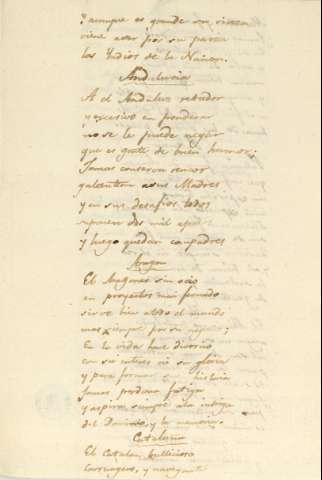 y aunque es grande su
viene a ser por su pureza
los Yndios de la Nacion.
Andalucia
A el Andaluz retador
y excesivo en ponderar
no se le puede negar
que es gente de buen humor;
Jamas conserva rencor
galantean a sus Madres
y en sus desafios todos
mil
y luego quedan compadres
Aragon
El Aragones sin ocio
en proyectos mui fecundo
sirve bien a todo el mundo
mas siempre por su negocio;
En la vida hace divorcio
con su interes ni su gloria
y para formar historia
Jamas perdona fatiga
y aspira siempre a la intriga
del y la memoria.
Cataluña
El Catalan bullicioso
y navegante